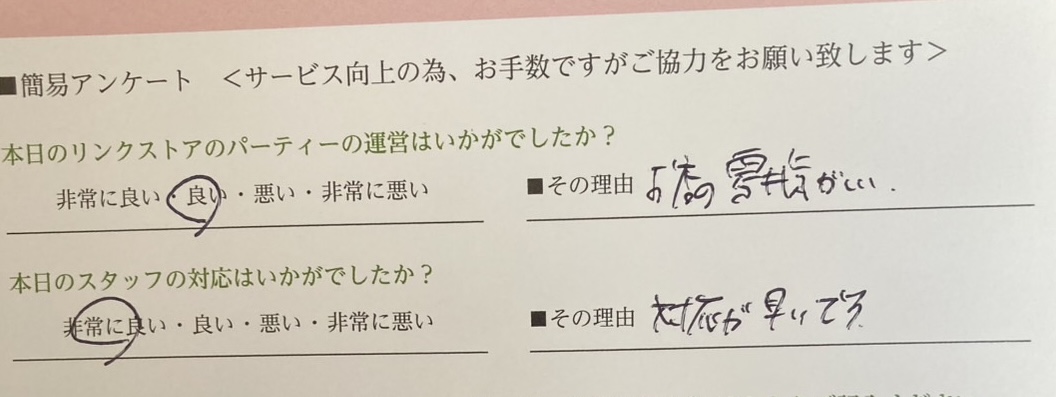 ■簡易アンケート ＜サービス向上の為、お手数ですがご協力をお願い致します＞
本日のリンクストアのパーティーの運営はいかがでしたか？
非常に良い・良い・悪い・非常に悪い ■その理由 お店の雰囲気がいい.
本日のスタッフの対応はいかがでしたか？
非常に良い・良い・悪い・非常に悪い ■その理由 対応が早いです